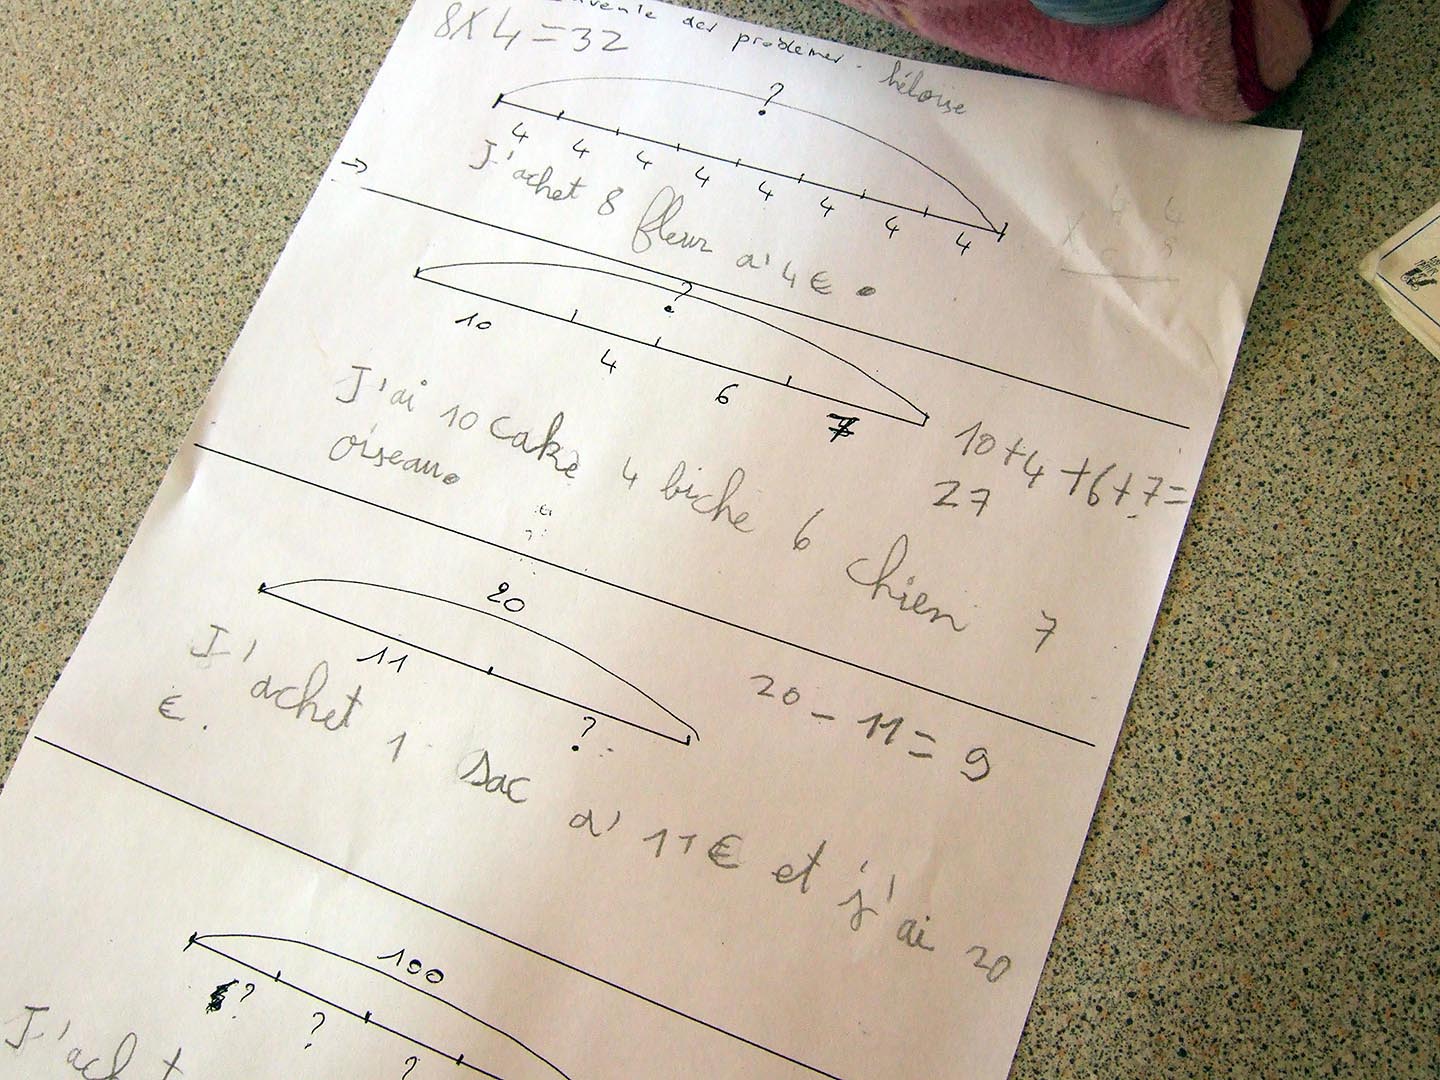 invente des problemes - héloïse
8 x 4 = 32
?
4 4 4 4 4 4 4 4
J'achet 8 fleur a' 4 €.
→
?
10 4 6 7
10 + 4 + 6 + 7 =
27
J'ai 10 cake 4 biche 6 chien 7
oiseau.
20
11 ?
20 - 11 = 9
J'achet 1 sac a' 11 € et j'ai 20
€.
100
? ? ?
J'achet